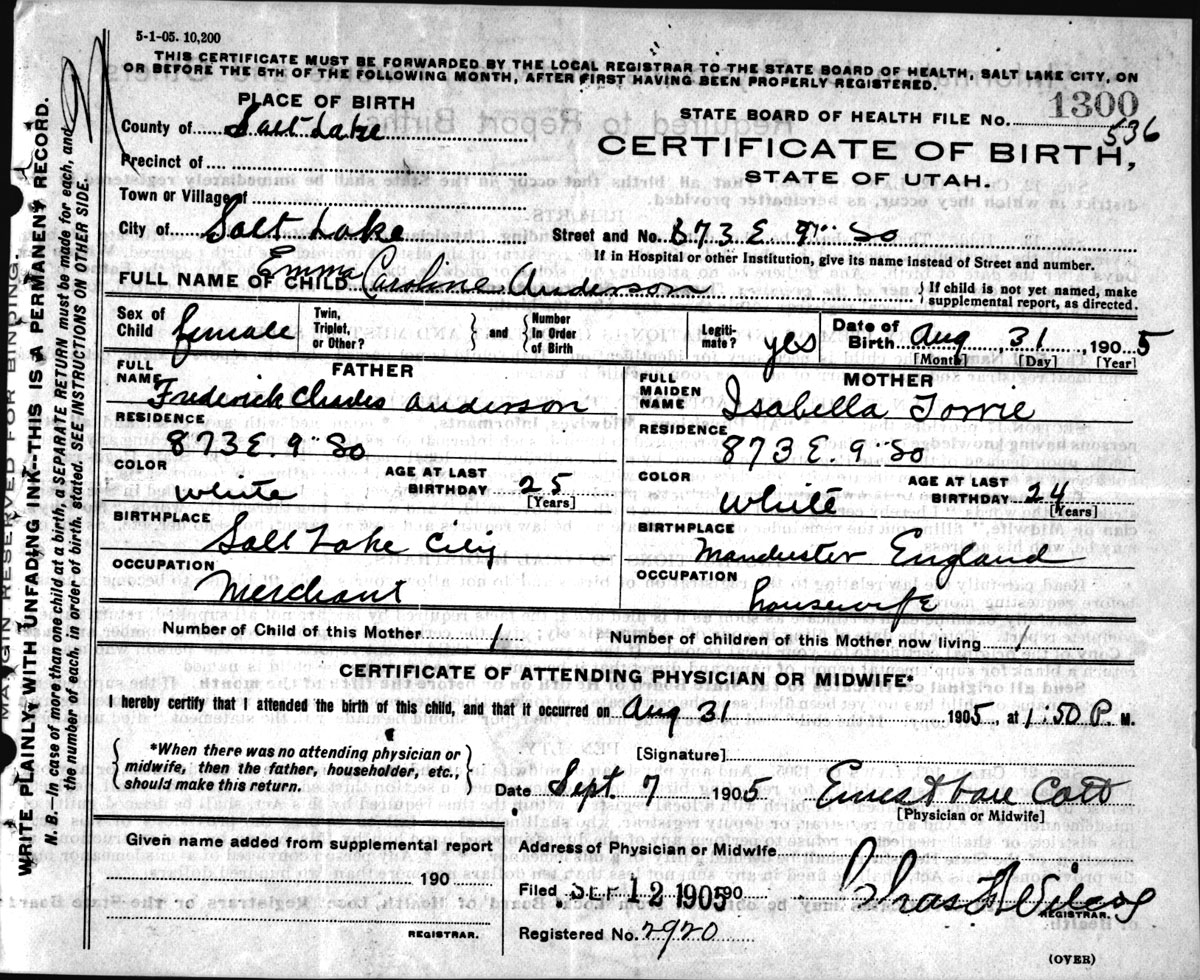 5-1-05. 10,200
THIS CERTIFICATE MUST BE FORWARDED BY THE LOCAL REGISTRAR TO THE STATE BOARD OF HEALTH, SALT LAKE CITY, ON
OR BEFORE THE 5TH OF THE FOLLOWING MONTH, AFTER FIRST HAVING BEEN PROPERLY REGISTERED.
PLACE OF BIRTH
STATE BOARD OF HEALTH FILE NO. 1300
536
County of Salt Lake
CERTIFICATE OF BIRTH,
STATE OF UTAH.
Precinct of
Town or Village of
City of Salt Lake Street and No. 873 E 9" So
If in Hospital or other Institution, give its name instead of Street and number.
FULL NAME OF CHILD Emma Caroline Anderson { If child is not yet named, make supplemental report, as directed.
Sex of Child female Twin, Triplet, or Other? } and { Number In Order of Birth Legitimate? yes Date of Birth Aug, 31, 1905
[Month] [Day] [Year]
FATHER
MOTHER
FULL NAME Frederick Charles Anderson
FULL MAIDEN NAME Isabella Torrie
RESIDENCE 873 E. 9" So
RESIDENCE 873 E. 9" So
COLOR white AGE AT LAST BIRTHDAY 25 [Years]
COLOR White AGE AT LAST BIRTHDAY 24 [Years]
BIRTHPLACE Salt Lake City
BIRTHPLACE Manchester England
OCCUPATION Merchant
OCCUPATION housewife
Number of Child of this Mother 1 Number of children of this Mother now living 1
CERTIFICATE OF ATTENDING PHYSICIAN OR MIDWIFE*
I hereby certify that I attended the birth of this child, and that it occurred on Aug 31 1905, at 1.50 P. M.
{ *When there was no attending physician or midwife, then the father, householder, etc., should make this return. }
[Signature]
Date Sept. 7 1905 Ernest Van Cott
[Physician or Midwife]
Given name added from supplemental report
190
REGISTRAR.
Address of Physician or Midwife
Filed SEP 12 1905 190 Chas A Wilcox
REGISTRAR.
Registered No. 2920
(OVER)
MARGIN RESERVED FOR BINDING.
WRITE PLAINLY WITH UNFADING INK--THIS IS A PERMANENT RECORD.
N. B.--In case of more than one child at a birth, a SEPARATE RETURN must be made for each, and
the number of each, in order of birth, stated. SEE INSTRUCTIONS ON OTHER SIDE.